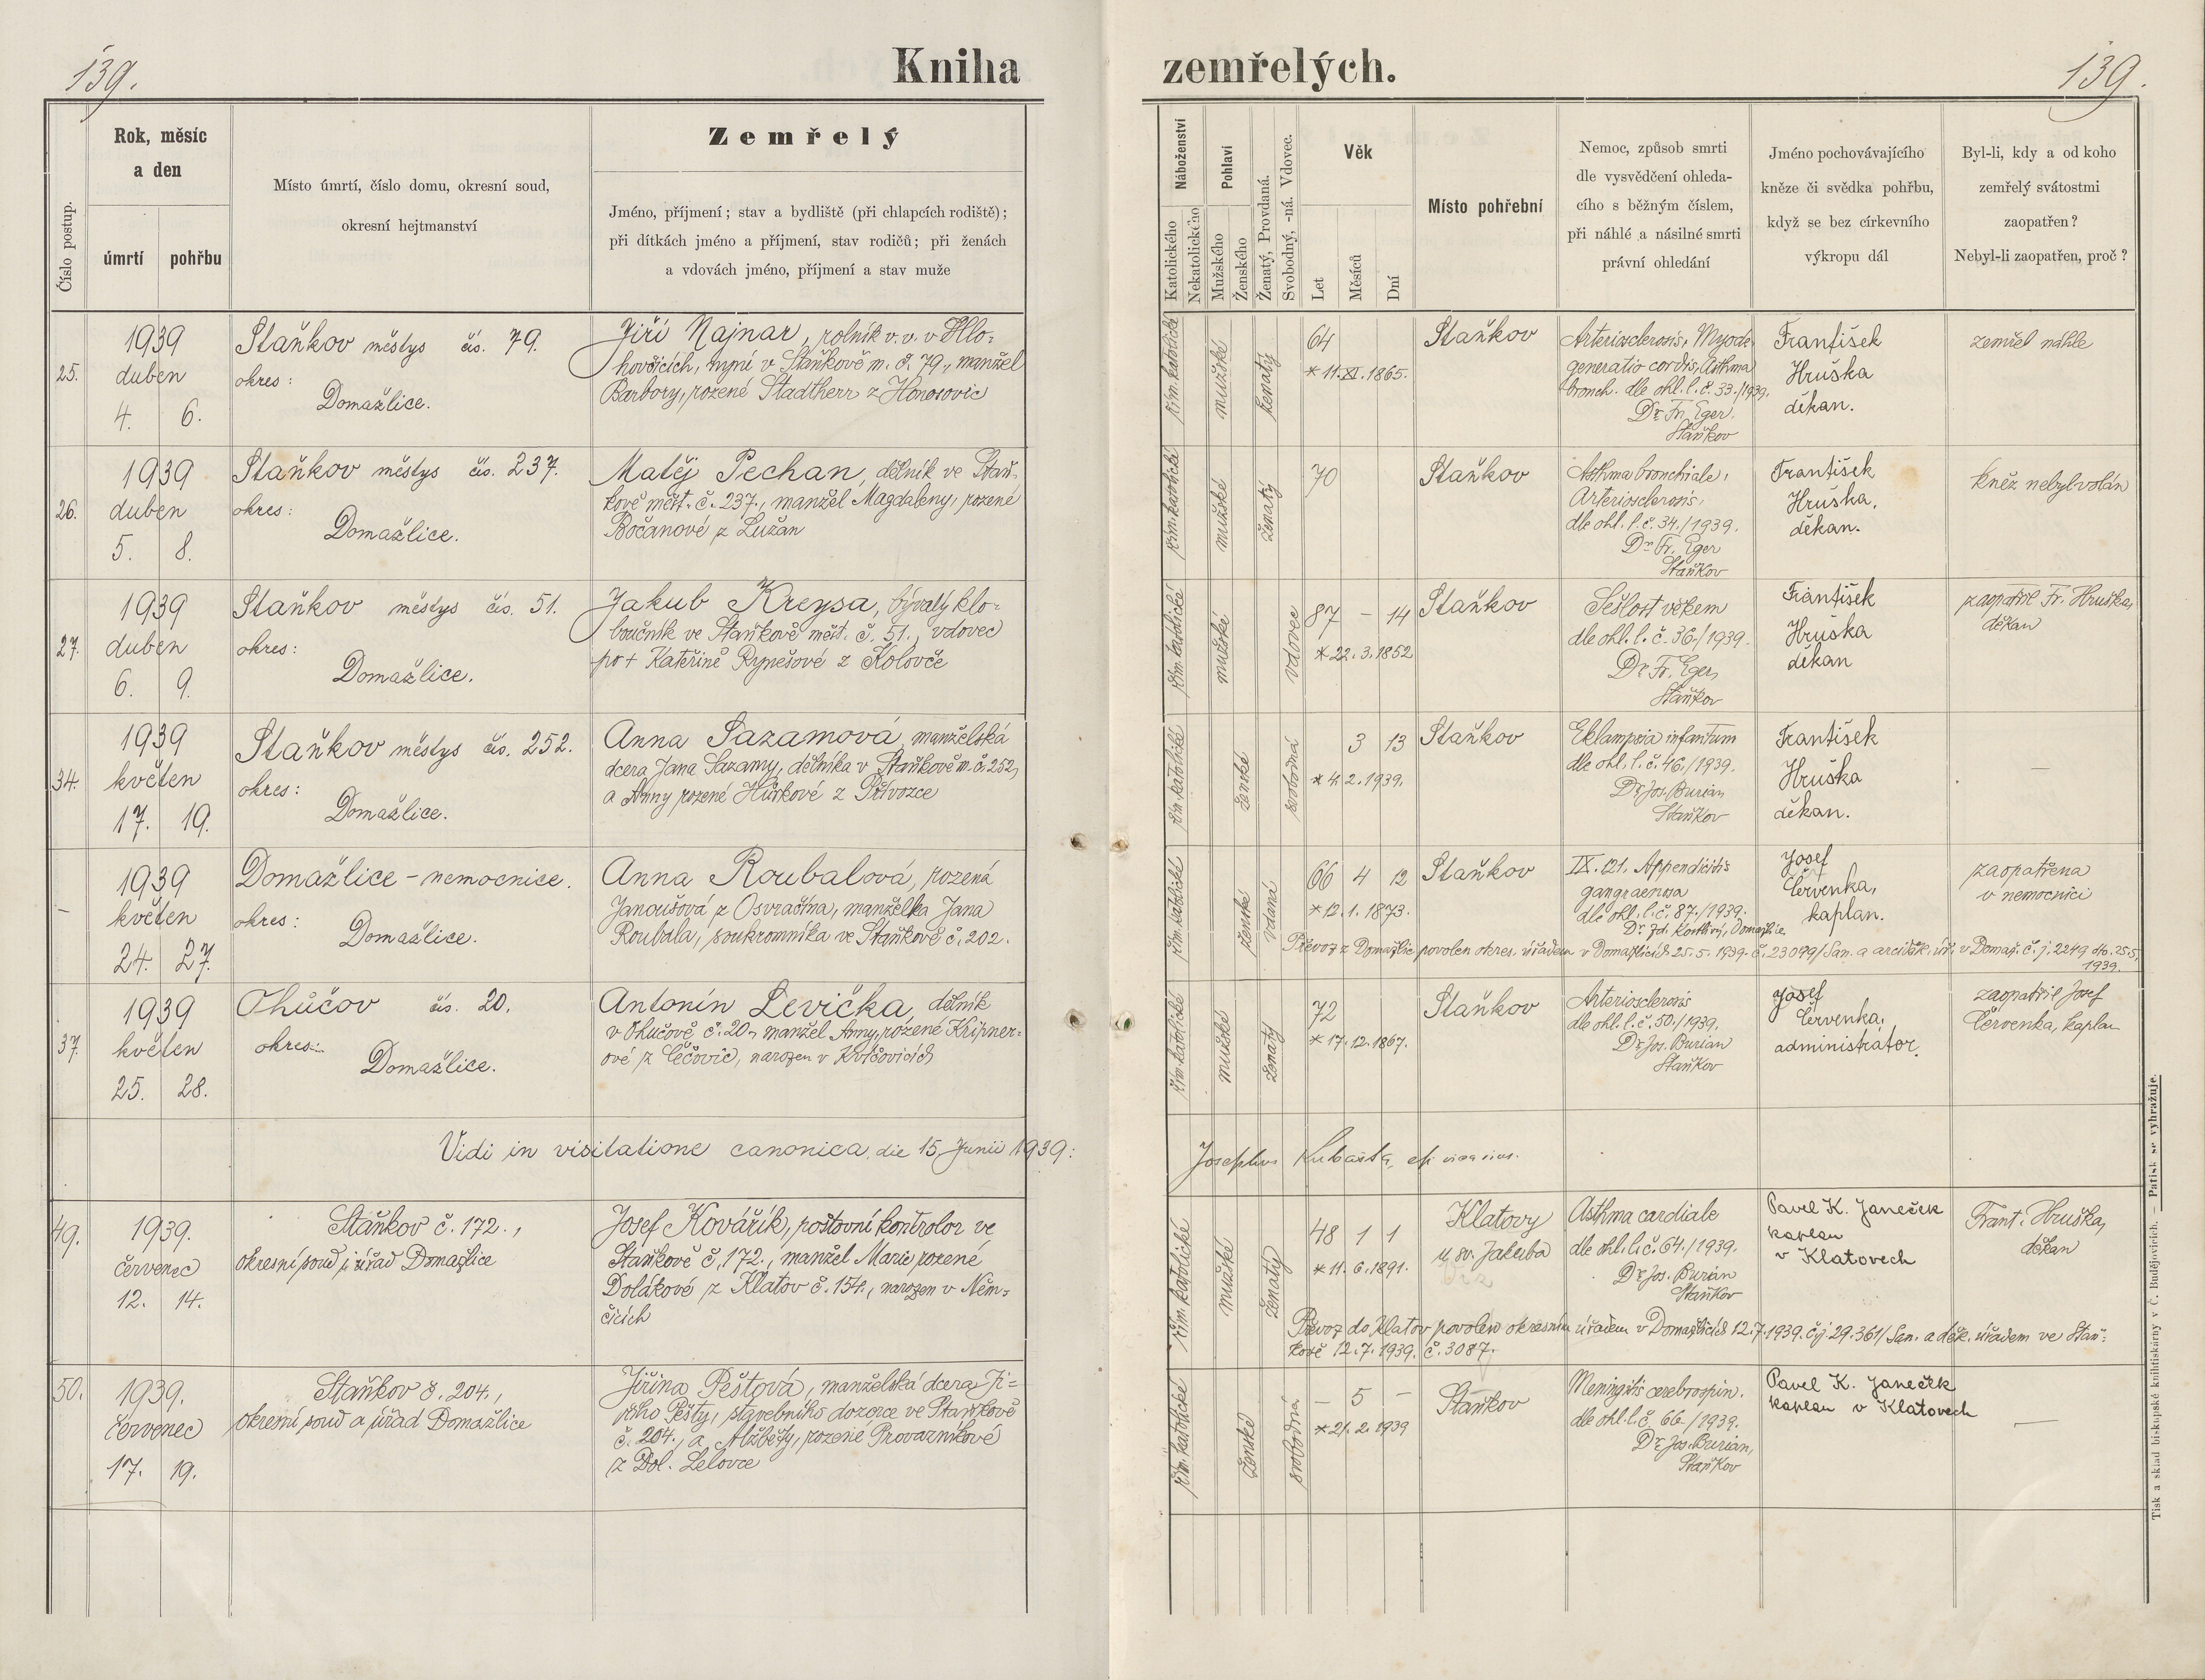 139.
Kniha
Číslo postup.
Rok, měsíc
a den
úmrtí
pohřbu
Místo úmrtí, číslo domu, okresní soud,
okresní hejtmanství
Zemřelý
Jméno, příjmení; stav a bydliště (při chlapcích rodiště);
při dítkách jméno a příjmení, stav rodičů; při ženách
a vdovách jméno, příjmení a stav muže
25.
1939
duben
4. 6.
Staňkov městys čís. 79.
okres:
Domažlice.
Jiří Najnar, rolník v.v. v Hlo-
hovčicích, nyní v Staňkově m. č. 79., manžel
Barbory, rozené Stadtherr z Honosovic
26.
1939
duben
5. 8.
Staňkov městys čís. 237.
okres:
Domažlice.
Matěj Pechan, dělník ve Staň-
kově měst. č. 237., manžel Magdaleny, rozené
Bočanové z Lužan
27.
1939
duben
6. 9.
Staňkov městys čís. 51.
okres:
Domažlice.
Jakub Kreysa, bývalý klo-
boučník ve Staňkově měst. č. 51., vdovec
po + Kateřině Rynešové z Kolovče
34.
1939
květen
17. 19.
Staňkov městys čís. 252.
okres:
Domažlice.
Anna Sazamová, manželská
dcera Jana Sazamy, dělníka v Staňkově m. č. 252,
a Anny rozené Hůrkové z Přívozce
–
1939
květen
24. 27.
Domažlice - nemocnice.
okres:
Domažlice.
Anna Roubalová, rozená
Janoušová z Osvračína, manželka Jana
Roubala, soukromníka ve Staňkově č. 202.
37.
1939
květen
25. 28.
Ohůčov čís. 20.
okres:
Domažlice.
Antonín Levička, dělník
v Ohučově č. 20, manžel Anny, rozené Kripner-
ové z Čečovic, narozen v Kvíčovicích
Vidi in visitatione canonica, die 15. Junii 1939:
49.
1939.
červenec
12. 14.
Staňkov č. 172.,
okresní soud i úřad Domažlice
Josef Kovářík, poštovní kontrolor ve
Staňkově č. 172., manžel Marie rozené
Dolákové z Klatov č. 154., narozen v Něm-
čicích
50.
1939.
červenec
17. 19.
Staňkov č. 204.,
okresní soud a úřad Domažlice
Jiřina Peštová, manželská dcera Ji-
řího Pešty, stavebního dozorce ve Staňkově
č. 204., a Alžběty, rozené Provazníkové
z Dol. Lelovce
zemřelých.
139.
Náboženství
Katolického
Nekatolického
Pohlaví
Mužského
Ženského
Ženatý, Provdaná.
Svobodný, -ná. Vdovec.
Věk
Let
Měsíců
Dní
Místo pohřební
Nemoc, způsob smrti
dle vysvědčení ohleda-
cího s běžným číslem,
při náhlé a násilné smrti
právní ohledání
Jméno pochovávajícího
kněze či svědka pohřbu,
když se bez církevního
výkropu dál
Byl-li, kdy a od koho
zemřelý svátostmi
zaopatřen?
Nebyl-li zaopatřen, proč?
řím. katolické
mužské
ženatý
64
* 11. XI. 1865.
Staňkov
Arteriosclerosis, Myode-
generatio cordis, Asthma
bronch. dle ohl. l. č. 33./1939.
Dr. Fr. Eger
Staňkov
František
Hruška
děkan.
zemřel náhle
řím. katolické
mužské
ženatý
70
Staňkov
Asthma bronchiale,
Arteriosclerosis,
dle ohl. l. č. 34./1939.
Dr. Fr. Eger
Staňkov
František
Hruška,
děkan.
kněz nebyl volán
řím. katolické
mužské
vdovec
87 – 14
* 22. 3. 1852
Staňkov
Sešlost věkem
dle ohl. l. č. 36./1939.
Dr. Fr. Eger,
Staňkov
František
Hruška
děkan
zaopatřil Fr. Hruška,
děkan
řím. katolické
ženské
svobodná
3 13
* 4. 2. 1939.
Staňkov
Eklampsia infantum
dle ohl. l. č. 46./1939.
Dr. Jos. Burian
Staňkov
František
Hruška
děkan.
–
řím. katolické
ženské
vdaná
66 4 12
* 12. 1. 1873.
Staňkov
IX. 121. Appendicitis
gangraenosa
dle ohl. l. č. 87./1939.
Josef
Červenka,
kaplan.
zaopatřena
v nemocnici
Převoz z Domažlic povolen okres. úřadem v Domažlicích 25. 5. 1939. č. 23099/San. a arciděk. úř. v Domaž. č. j. 2249 dto. 25.5.
1939.
řím. katolické
mužské
ženatý
72
* 17. 12. 1867.
Staňkov
Arteriosclerosis
dle ohl. l. č. 50./1939.
Dr. Jos. Burian
Staňkov
Josef
Červenka,
administrátor.
zaopatřil Josef
Červenka, kaplan
Josephus Kubašta, epi. vicarius.
řím. katolické
mužské
ženatý
48 1 1
* 11. 6. 1891.
Klatovy
u sv. Jakuba
Asthma cardiale
dle ohl. l. č. 64./1939.
Dr. Jos. Burian
Staňkov
Pavel K. Janeček
kaplan
v Klatovech
Frant. Hruška,
děkan
Převoz do Klatov povolen okresním úřadem v Domažlicích 12. 7. 1939. č.j. 29.361/San. a děk. úřadem ve Staň-
kově 12. 7. 1939. č. 3087.
řím. katolické
ženské
svobodná
– 5 –
* 21. 2. 1939
Staňkov
Meningitis cerebrospin.
dle ohl. l. č. 66./1939.
Dr. Jos. Burian,
Staňkov
Pavel K. Janeček
kaplan v Klatovech
–
Tisk a sklad biskupské knihtiskárny v Č. Budějovicích. – Patisk se vyhražuje.